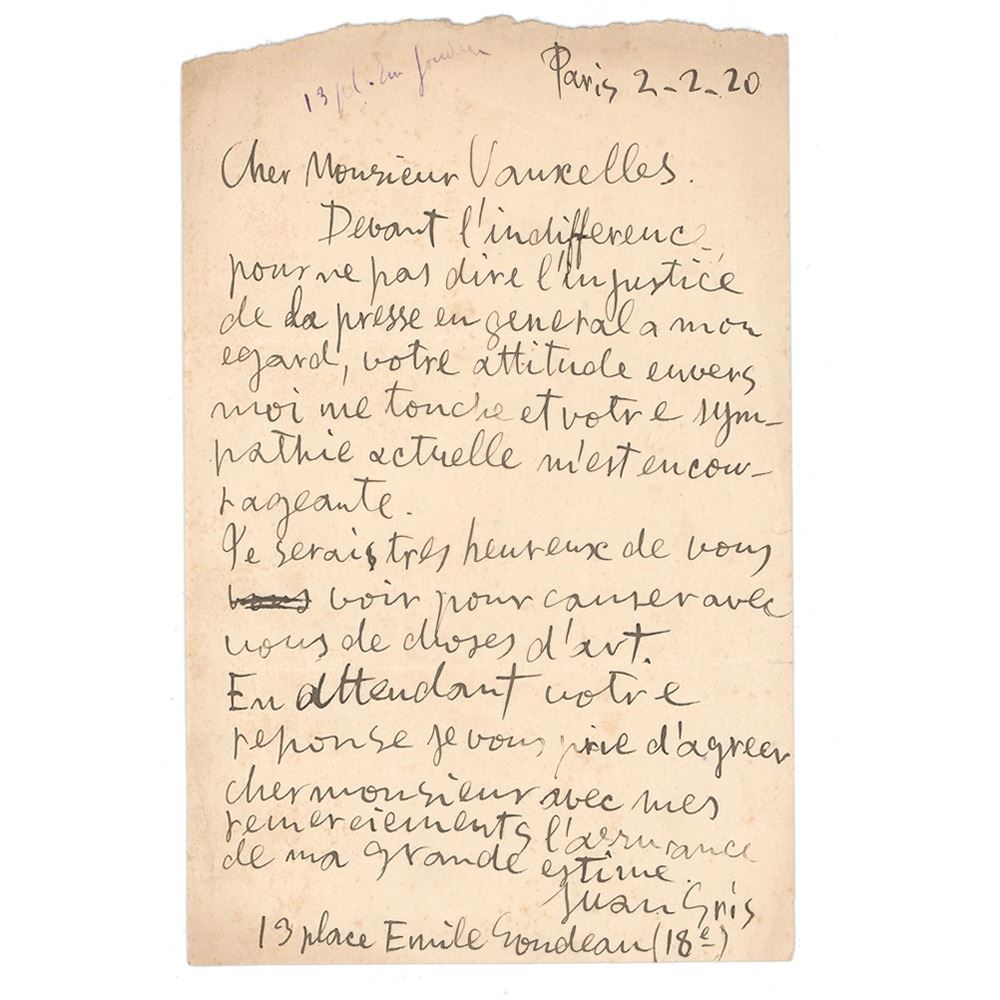 13 pl. Em Goudeau
Paris 2-2-20
Cher Monsieur Vauxcelles.
Devant l'indifference
pour ne pas dire l'injustice
de la presse en general a mon
egard, votre attitude envers
moi me touche et votre sym-
pathie actuelle m'est encou-
rageante.
Je serais tres heureux de vous
vous voir pour causer avec
vous de choses d'art.
En attendant votre
reponse je vous prie d'agreer
cher monsieur avec mes
remerciements l'assurance
de ma grande estime.
Juan Gris
13 place Emile Goudeau (18e)